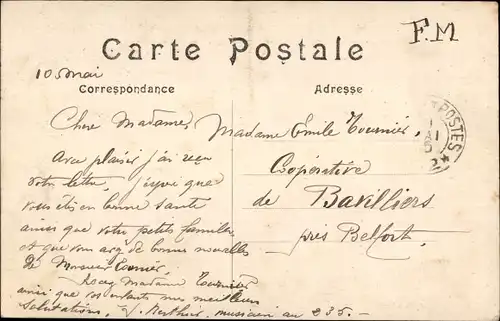 F.M
Carte Postale
10 mai
Correspondance
Adresse
POSTES
Chère Madame,
Madame Émile Tournier,
Avec plaisir j'ai reçu
votre lettre, j'espère que
vous êtes en bonne santé
ainsi que votre petite famille
et que vous avez de bonnes nouvelles
de Monsieur Tournier,
Coopérative
de Bavilliers
près Belfort.
Recevez Madame Tournier
ainsi que vos enfants mes meilleurs
salutations, musicien au 235 -